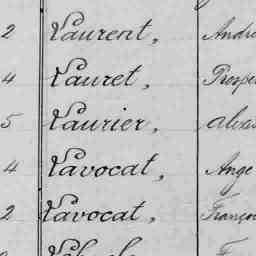 2 Laurent, André
4 Lauret, Prosper
5 Laurier, Alva
4 Lavocat, Ange
2 Lavocat, Franço